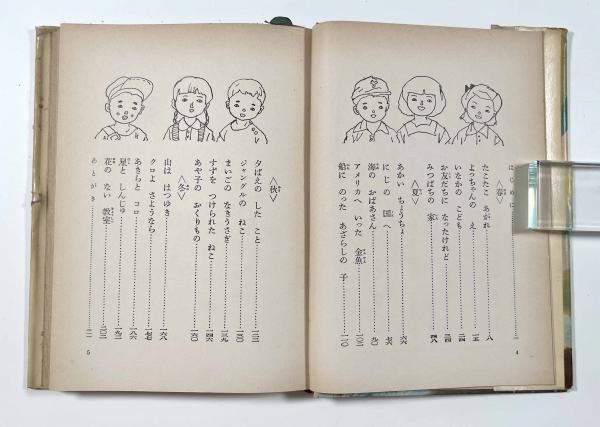 はじめに……一
〈春〉
たこたこ あがれ……八
よっちゃんの え……一五
いなかの こども……二四
お友だちに なったけれど……三四
みつばちの 家……四八
〈夏〉
あかい ちょうちょ……六六
にじの 国へ……七六
海の おばあさん……九〇
アメリカへ いった 金魚……一〇二
船に のった あざらしの 子……一一〇
4
〈秋〉
夕ばえの した こと……一二三
ジャングルの ねこ……一三〇
まいごの なきうさぎ……一三九
すずを つけられた ねこ……一四六
あや子の おくりもの……一六〇
〈冬〉
山は はつゆき……一六八
クロよ さようなら……一七七
あきらと コロ……一八六
星と しんじゅ……一九二
花の ない 教室……二〇二
あとがき……二一一
5